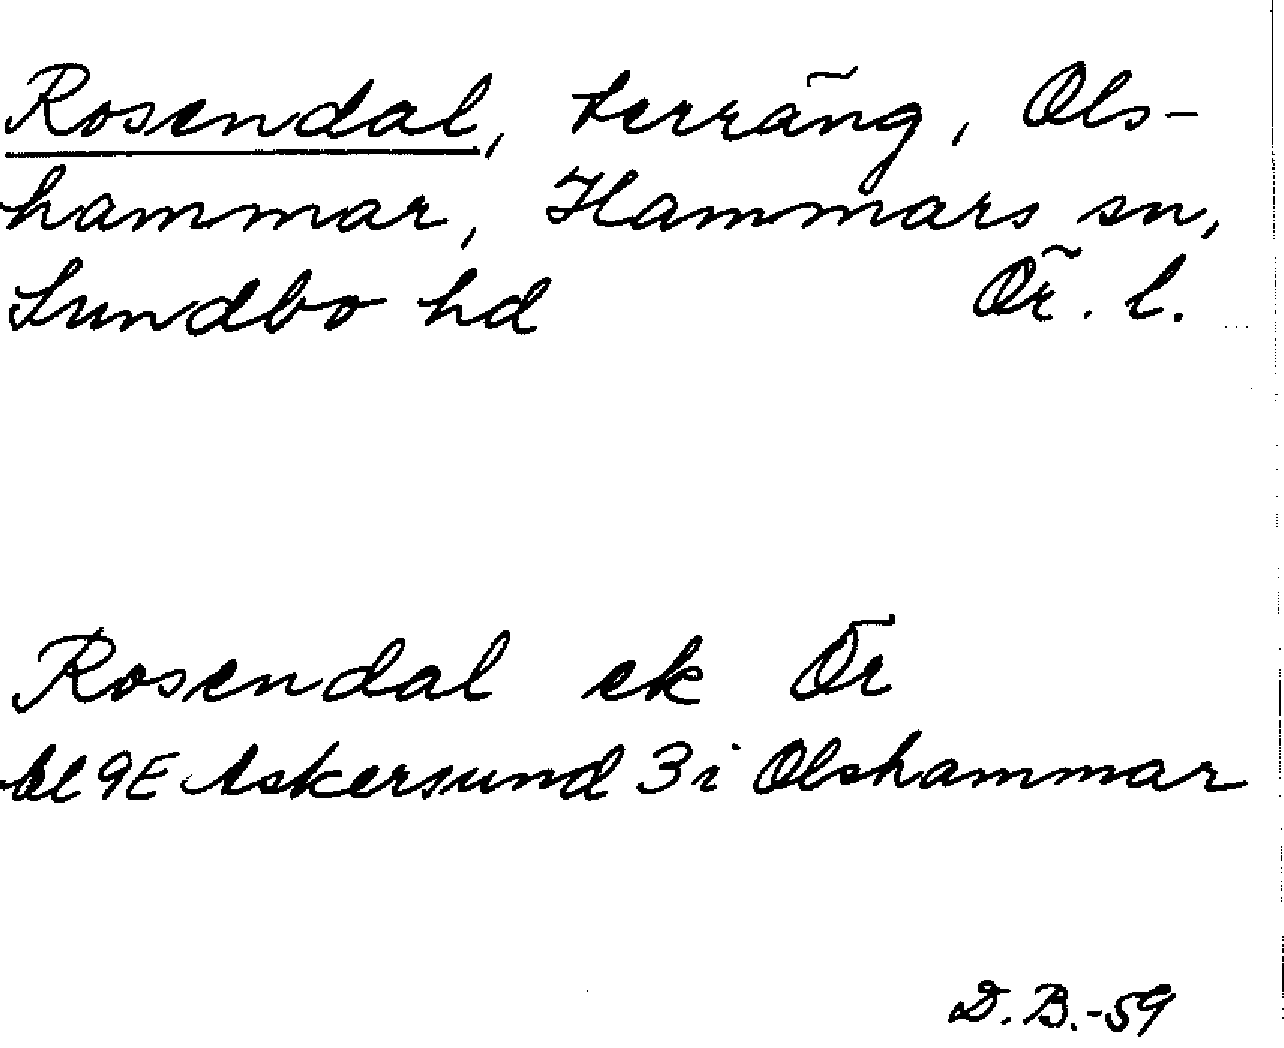 Rosendal, terräng, Ols-
hammar, Hammars sn,
Sundbo hd Ör. l.
Rosendal ek Ör
bl 9E Askersund 3i Olshammar
D. B.-59